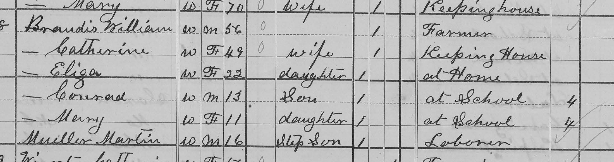 — Mary W F 70 0 Wife 1 Keeping house
8 Brandis William W M 56 0 1 Farmer
— Catherine W F 49 0 wife 1 Keeping House
— Eliza W F 22 daughter 1 at Home
— Conrad W M 13 Son 1 at School 4
— Mary W F 11 daughter 1 at School 4
Muiller Martin W M 16 Step Son 1 Laborer